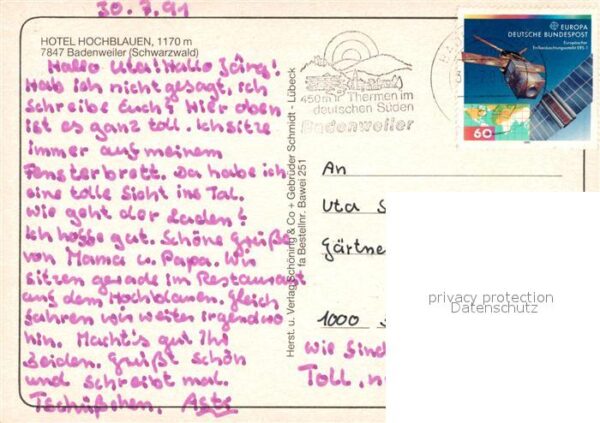 30.7.91
HOTEL HOCHBLAUEN, 1170 m
7847 Badenweiler (Schwarzwald)
Hallo Uta! Hallo Jörg!
Hab ich nicht gesagt, ich
schreibe Euch? Hier oben
ist es ganz toll. Ich sitze
immer auf meinem
Fensterbrett. Da habe ich
eine tolle Sicht ins Tal.
Wie geht der Laden?
Ich hoffe gut. Schöne Grüße
von Mama u. Papa. Wir
sitzen gerade im Restaurant
auf dem Hochblauen. Gleich
fahren wir weiter irgendwo
hin. Macht's gut Ihr
Beiden. Grüßt schön
und schreibt mal.
Tschüßchen.
Herst. u. Verlag Schöning & Co + Gebrüder Schmidt - Lübeck
fa Bestellnr. Bawei 251
450m ü. Thermen im
deutschen Süden
Badenweiler
EUROPA
DEUTSCHE BUNDESPOST
Europäischer
Fernerkundungssatellit ERS-1
60
An
Uta S
Gärtne
1000
Wie sind
Toll, n
privacy protection
Datenschutz